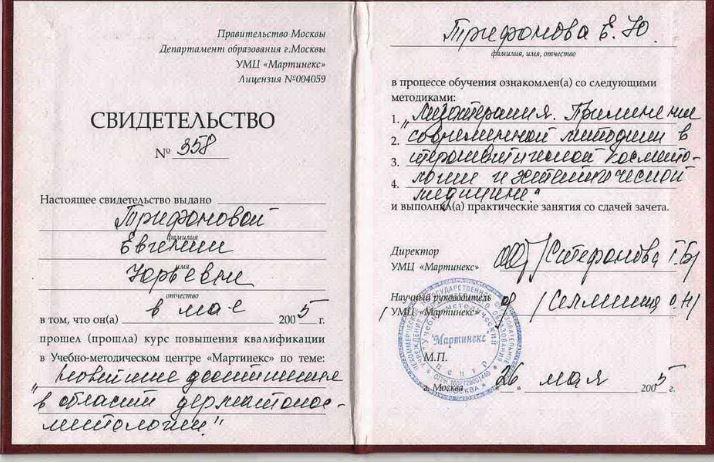 Правительство Москвы
Департамент образования г.Москвы
УМЦ «Мартинекс»
Лицензия №004059
СВИДЕТЕЛЬСТВО
№ 358
Настоящее свидетельство выдано
Трифоновой
фамилия
Евгении
имя
Юрьевне
отчество
в том, что он(а) в мае 2005 г.
прошел (прошла) курс повышения квалификации
в Учебно-методическом центре «Мартинекс» по теме:
"Новейшие достижения
в области дерматокос-
метологии"
Трифонова Е. Ю.
фамилия, имя, отчество
в процессе обучения ознакомлен(а) со следующими
методиками:
1. "Мезотерапия. Применение
2. современной методики в
3. терапевтической космето-
4. логии и эстетической
медицине."
и выполнил(а) практические занятия со сдачей зачета.
Директор
УМЦ «Мартинекс»
Научный руководитель
УМЦ «Мартинекс»
Мартинекс
М.П.
г. Москва 26 мая 2005 г.